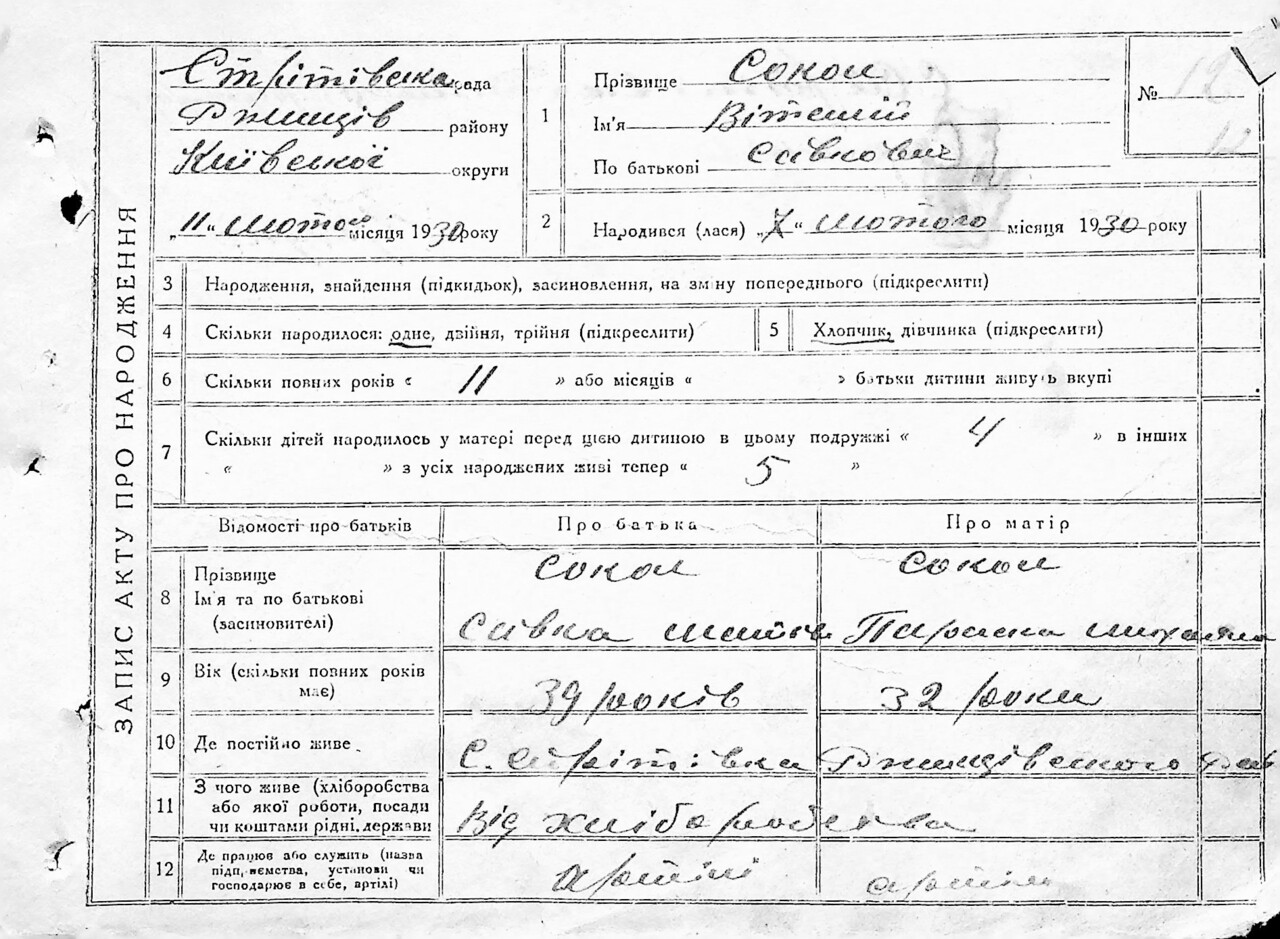 ЗАПИС АКТУ ПРО НАРОДЖЕННЯ
Стрітівська рада
Ржищів району
Київської округи
„11“ лютого місяця 1930 року
1 Прізвище Сокол
Ім'я Віталій
По батькові Савкович
№
2 Народився (лася) „7“ лютого місяця 1930 року
3 Народження, знайдення (підкидьок), засиновлення, на зміну попереднього (підкреслити)
4 Скільки народилося: одне, двійня, трійня (підкреслити)
5 Хлопчик, дівчинка (підкреслити)
6 Скільки повних років « 11 » або місяців « » батьки дитини живуть вкупі
7 Скільки дітей народилось у матері перед цією дитиною в цьому подружжі « 4 » в інших
« » з усіх народжених живі тепер « 5 »
Відомості про батьків Про батька Про матір
8 Прізвище Сокол Сокол
Ім'я та по батькові
(засиновителі) Савка Параска
9 Вік (скільки повних років
має) 39 років 32 роки
10 Де постійно живе С. Стрітівка Ржищівського рай
11 З чого живе (хліборобства
або якої роботи, посади
чи коштами рідні, держави Від хліборобства
12 Де працює або служить (назва
підп,иємства, установи чи
господарює в себе, артілі) артілі артілі